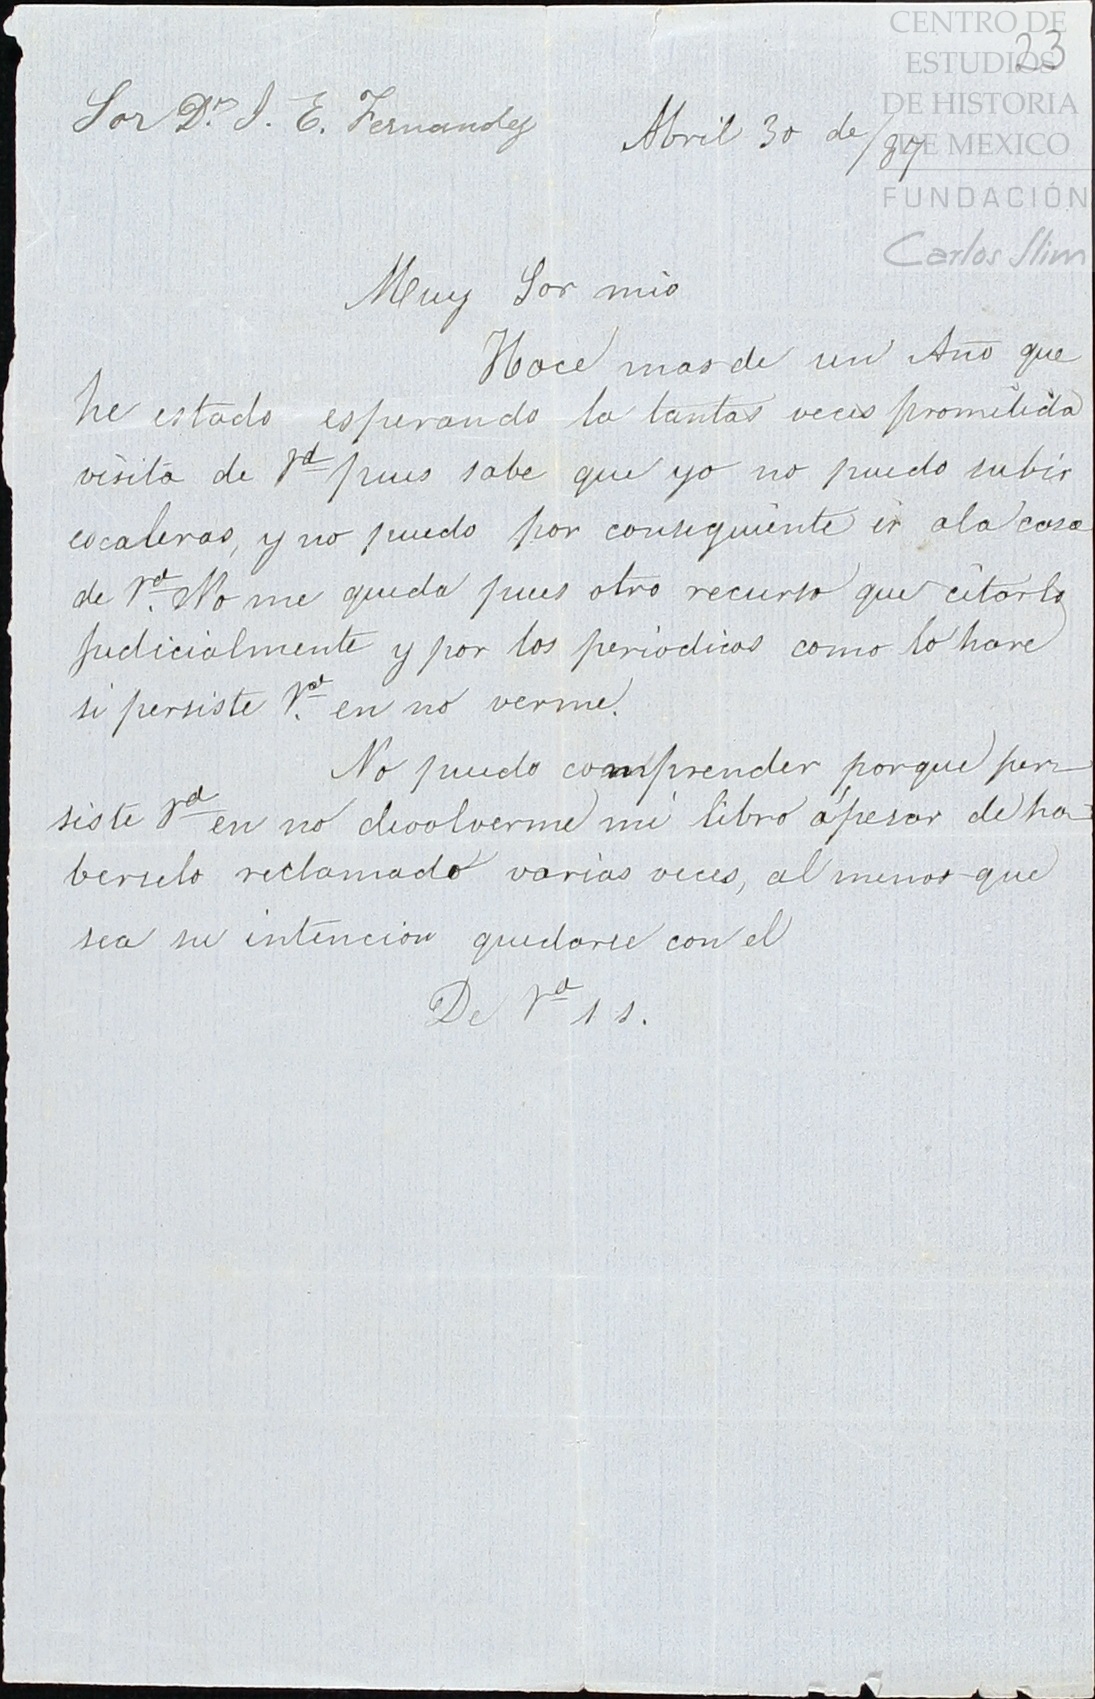 CENTRO DE
ESTUDIOS
DE HISTORIA
DE MEXICO
FUNDACIÓN
Carlos Slim
23
Sor Dn. J. E. Fernandez
Abril 30 de/87
Muy Sor mio
Hace mas de un Año que
he estado esperando la tantas veces prometida
visita de Vd pues sabe que yo no puedo subir
escaleras, y no puedo por consiguiente ir ala casa
de Vd. No me queda pues otro recurso que citarlo
judicialmente y por los periodicos como lo hare
si persiste Vd. en no verme.
No puedo comprender porque per-
siste Vd en no devolverme mi libro ápesar de ha-
berselo reclamado varias veces, al menos que
sea su intencion quedarse con el
De Vd s s.